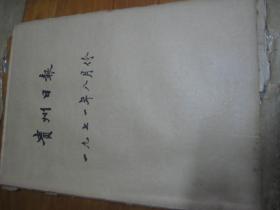 贵州日报
一九七一年八月份